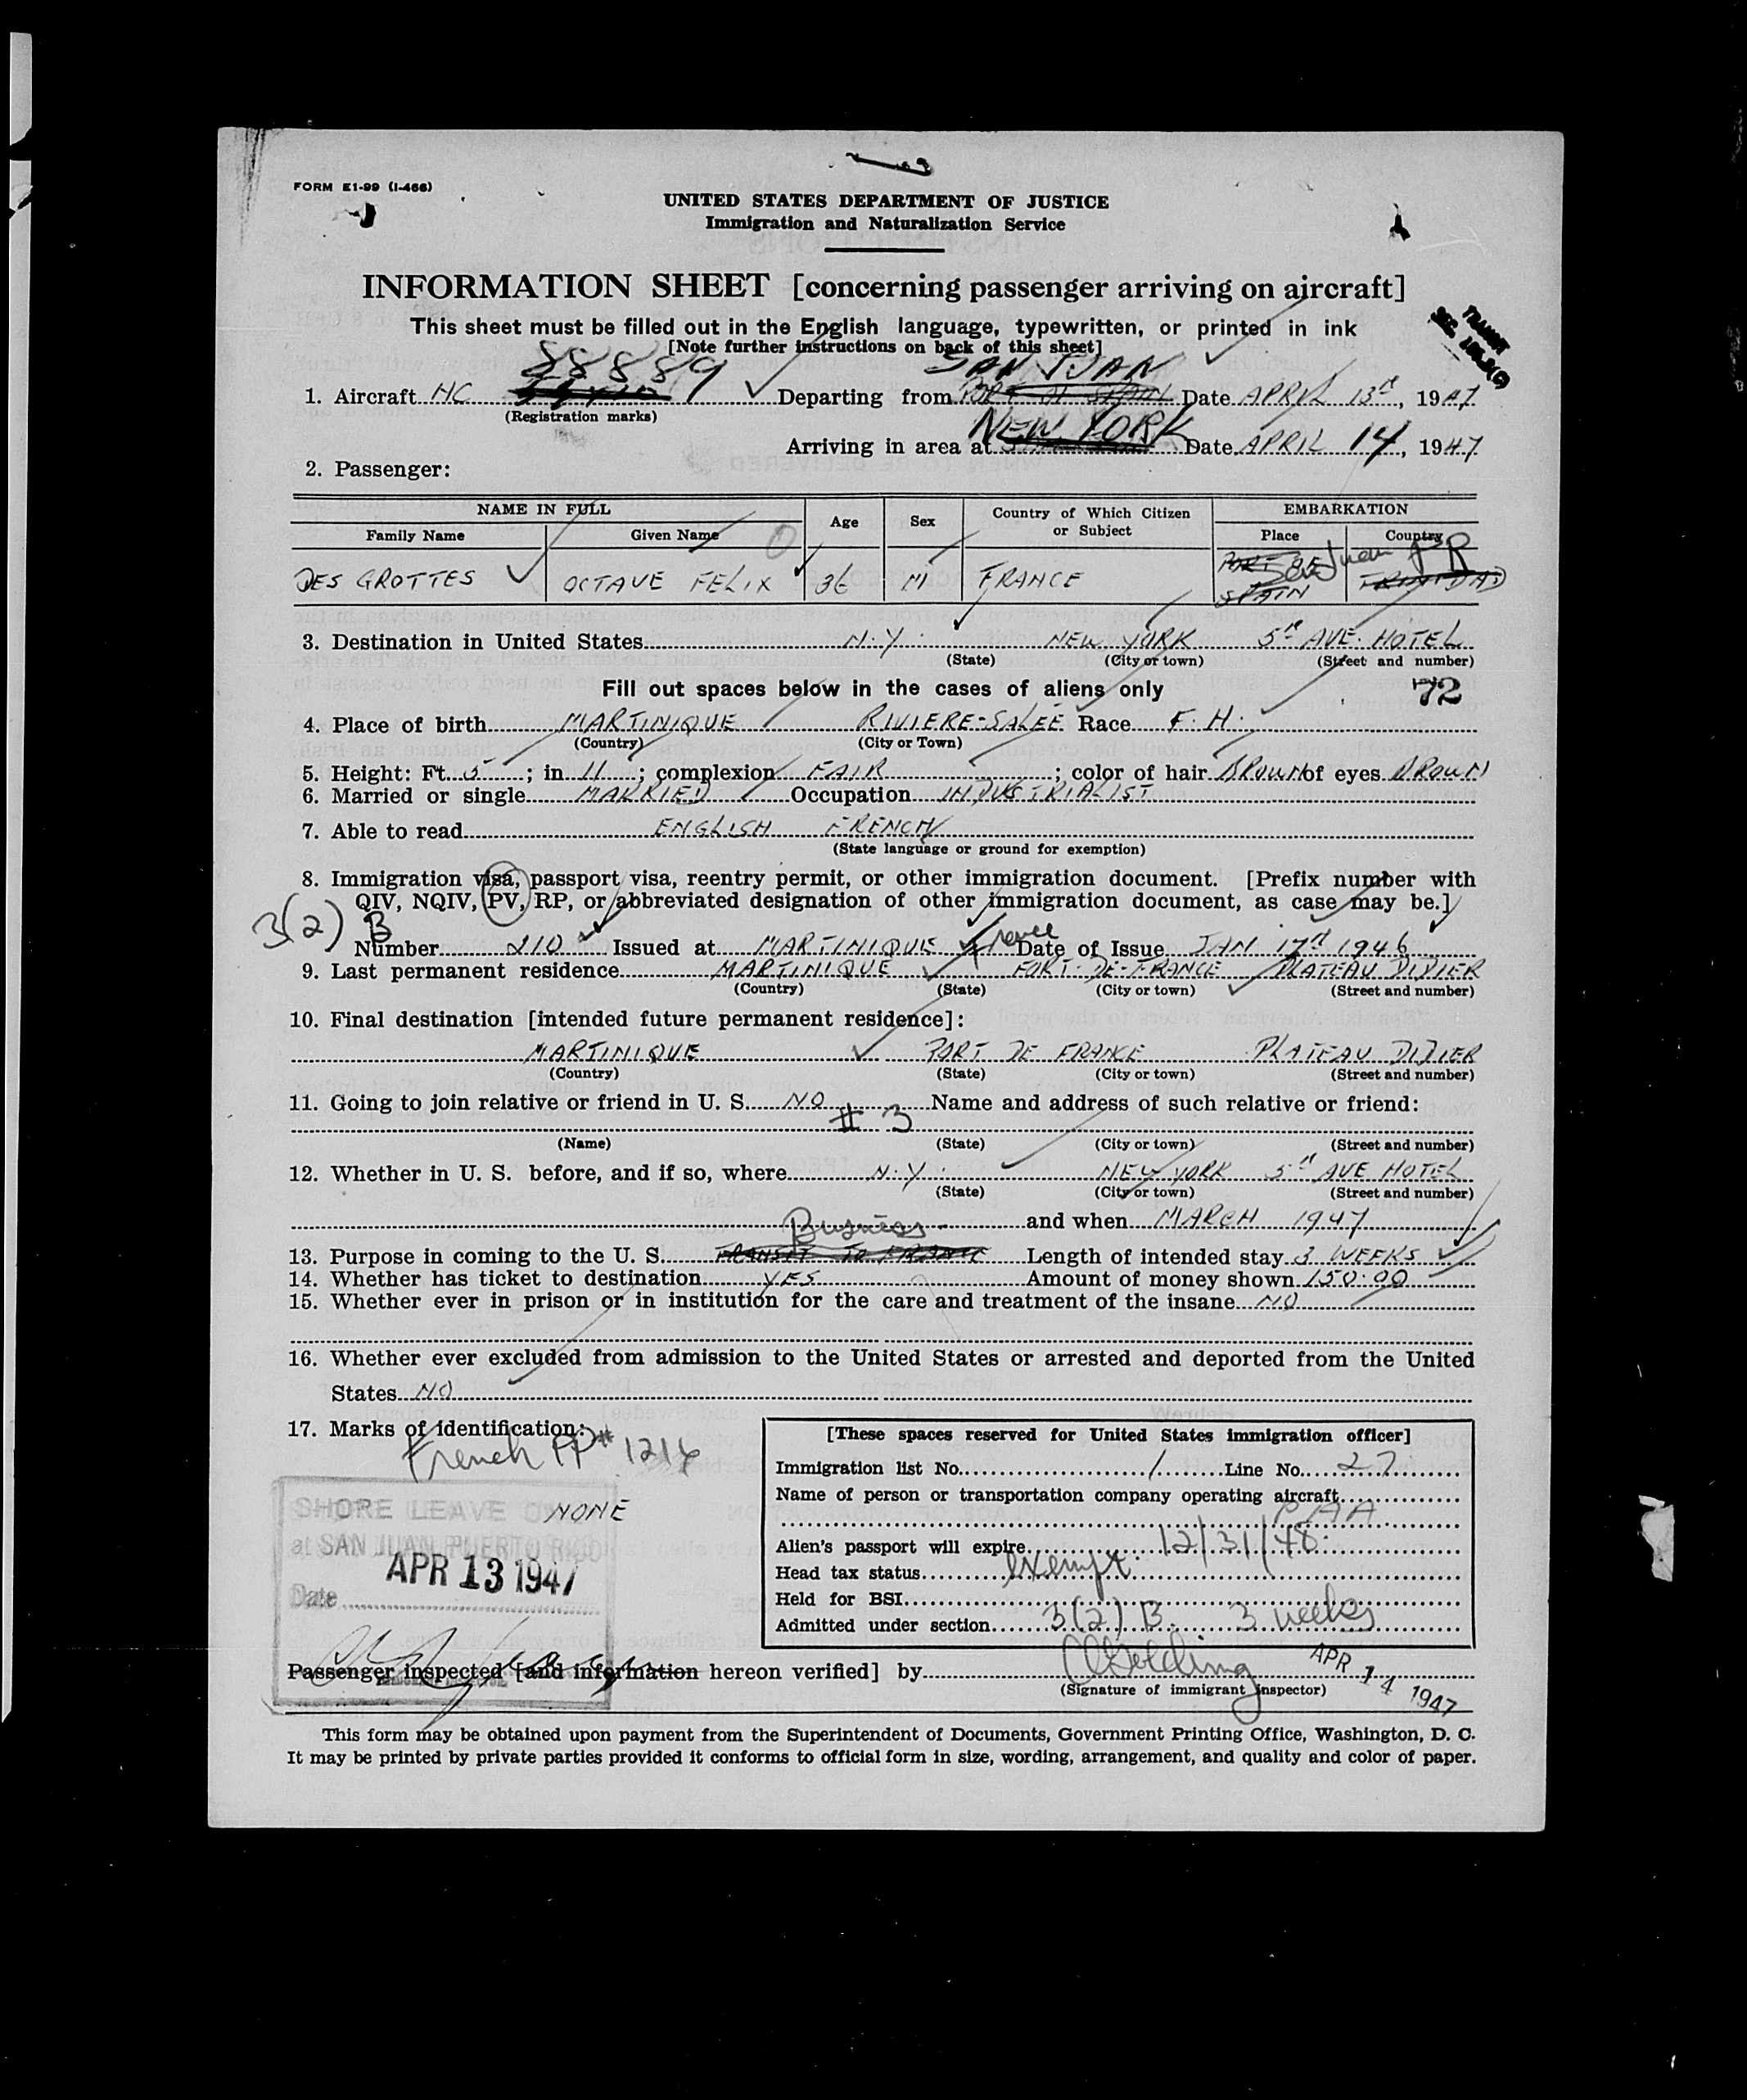 FORM E1-99 (I-466)
UNITED STATES DEPARTMENT OF JUSTICE
Immigration and Naturalization Service
INFORMATION SHEET [concerning passenger arriving on aircraft]
This sheet must be filled out in the English language, typewritten, or printed in ink
[Note further instructions on back of this sheet]
TRANSIT
SEC
88889 SAN JUAN
1. Aircraft HC Departing from PORT OF SPAIN Date APRIL 13th, 1947
(Registration marks)
NEW YORK
Arriving in area at Date APRIL 14, 1947
2. Passenger:
NAME IN FULL Age Sex Country of Which Citizen or Subject EMBARKATION
Family Name Given Name Place Country
San Juan PR
DES GROTTES OCTAVE FELIX 36 M FRANCE PORT OF SPAIN TRINIDAD
3. Destination in United States N.Y. NEW YORK 5th AVE. HOTEL
(State) (City or town) (Street and number)
Fill out spaces below in the cases of aliens only 72
4. Place of birth MARTINIQUE RIVIERE-SALEE Race F. H.
(Country) (City or Town)
5. Height: Ft. 5; in 11; complexion FAIR; color of hair BROWN of eyes BROWN
6. Married or single MARRIED Occupation INDUSTRIALIST
7. Able to read ENGLISH FRENCH
(State language or ground for exemption)
8. Immigration visa, passport visa, reentry permit, or other immigration document. [Prefix number with
QIV, NQIV, PV, RP, or abbreviated designation of other immigration document, as case may be.]
3(2) B
Number 210 Issued at MARTINIQUE France Date of Issue JAN 17th 1946
9. Last permanent residence MARTINIQUE FORT-DE-FRANCE PLATEAU DIDIER
(Country) (State) (City or town) (Street and number)
10. Final destination [intended future permanent residence]:
MARTINIQUE FORT DE FRANCE PLATEAU DIDIER
(Country) (State) (City or town) (Street and number)
11. Going to join relative or friend in U. S. NO Name and address of such relative or friend:
# 3
(Name) (State) (City or town) (Street and number)
12. Whether in U. S. before, and if so, where N.Y. NEW YORK 5th AVE HOTEL
(State) (City or town) (Street and number)
and when MARCH 1947
Business
13. Purpose in coming to the U. S. TRANSIT TO FRANCE Length of intended stay 3 WEEKS
14. Whether has ticket to destination YES Amount of money shown 150.00
15. Whether ever in prison or in institution for the care and treatment of the insane NO
16. Whether ever excluded from admission to the United States or arrested and deported from the United
States NO
17. Marks of identification:
French PP# 1216
NONE
SHORE LEAVE ONLY
at SAN JUAN PUERTO RICO
APR 13 1947
Date
[These spaces reserved for United States immigration officer]
Immigration list No. 1 Line No. 27
Name of person or transportation company operating aircraft
PAA
Alien's passport will expire 12/31/48
Head tax status exempt
Held for BSI
Admitted under section 3(2) B. 3 weeks
Passenger inspected [and information hereon verified] by
APR 14 1947
(Signature of immigrant inspector)
This form may be obtained upon payment from the Superintendent of Documents, Government Printing Office, Washington, D. C.
It may be printed by private parties provided it conforms to official form in size, wording, arrangement, and quality and color of paper.